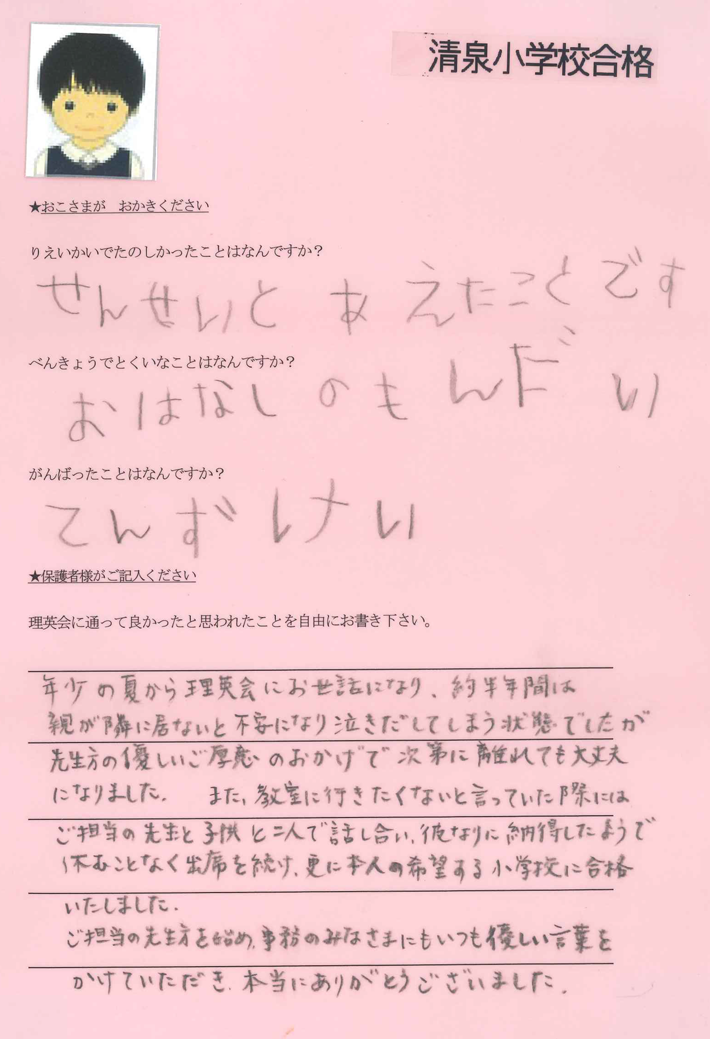 清泉小学校合格
★おこさまが　おかきください
りえいかいでたのしかったことはなんですか？
せんせいと あえたことです
べんきょうでとくいなことはなんですか？
おはなしのもんだい
がんばったことはなんですか？
てんずけい
★保護者様がご記入ください
理英会に通って良かったと思われたことを自由にお書き下さい。
年少の夏から理英会にお世話になり、約半年間は
親が隣に居ないと不安になり泣きだしてしまう状態でしたが
先生方の優しいご厚意のおかげで次第に離れても大丈夫
になりました。　また、教室に行きたくないと言っていた際には
ご担当の先生と子供と二人で話し合い、彼なりに納得したようで
休むことなく出席を続け、更に本人の希望する小学校に合格
いたしました。
ご担当の先生方を始め、事務のみなさまにもいつも優しい言葉を
かけていただき、本当にありがとうございました。